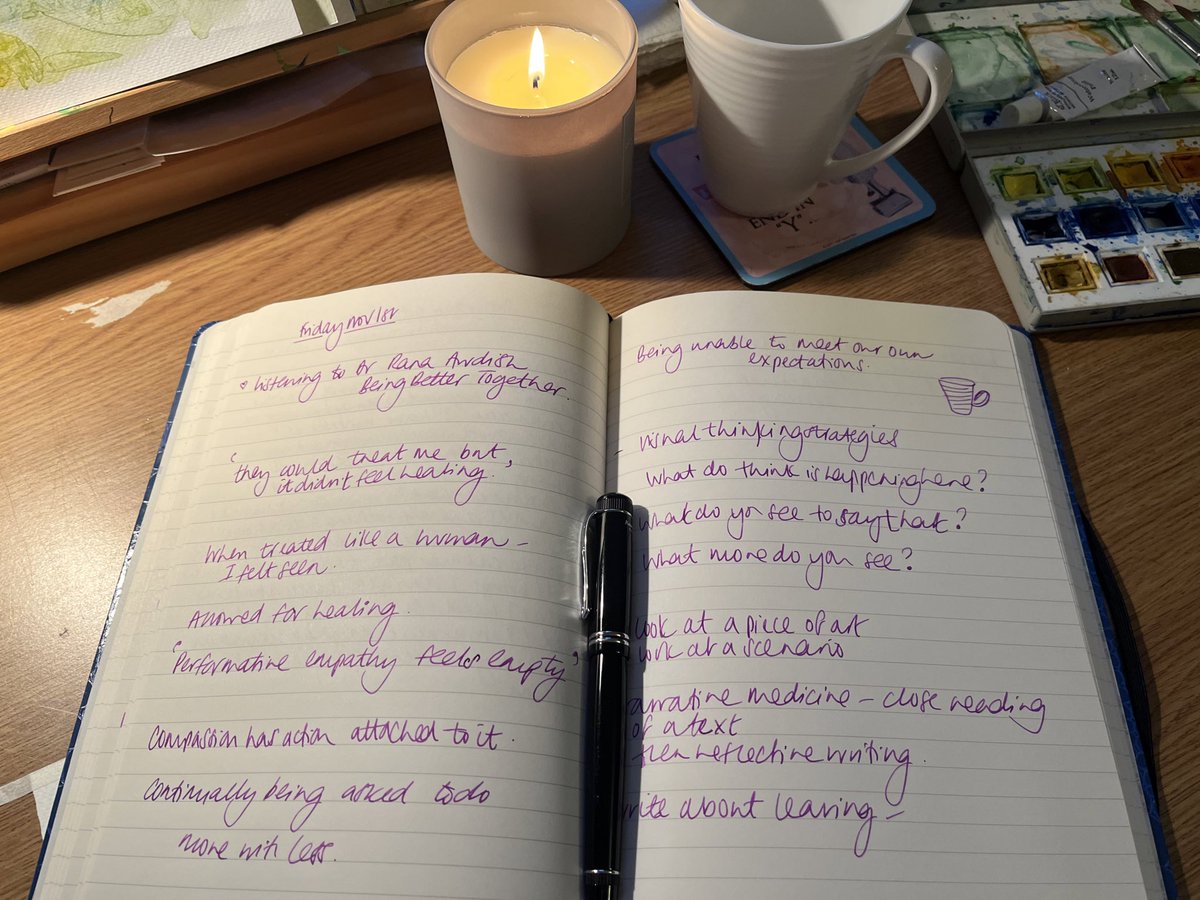 Friday Nov 1st
• listening to Dr Rana Awdish
Being Better Together.
'they could treat me but,
it didn't feel healing.'
When treated like a human –
I felt seen.
Allowed for healing.
'Performative empathy feels empty'
Compassion has action attached to it.
Continually being asked to do
more with less.
Being unable to meet our own
expectations.
- visual thinking strategies
What do think is happening here?
What do you see to say that?
What more do you see?
look at a piece of art
look at a scenario
narrative medicine – close reading
of a text
then reflective writing.
write about leaving –
END IN
"Y"